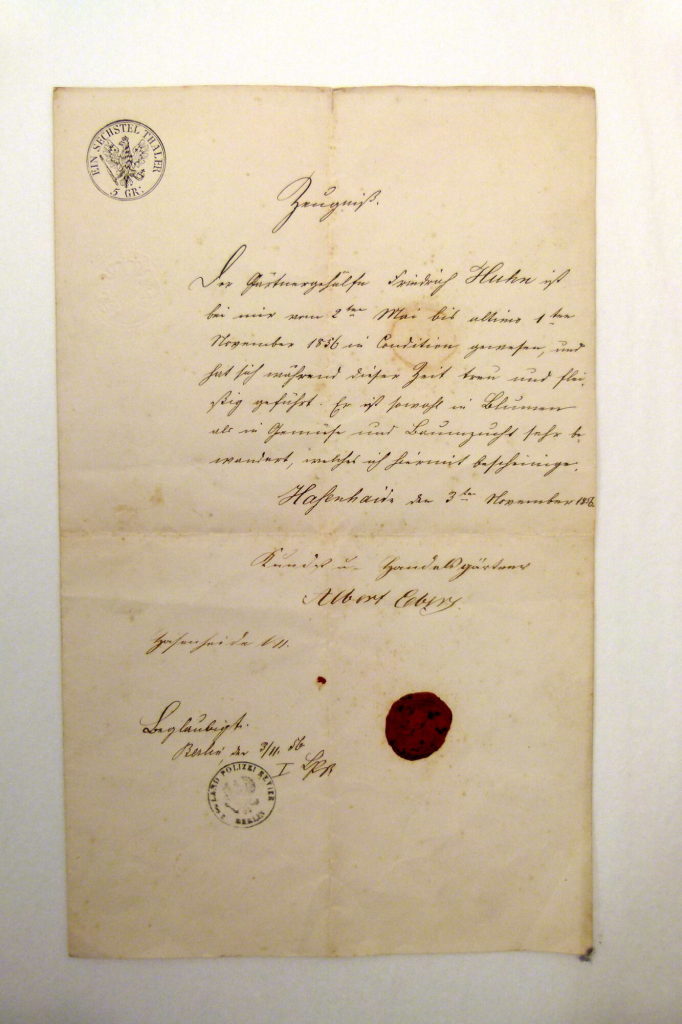 EIN SECHSTEL THALER
5 GR:
Zeugniß.
Der Gärtnergehülfe Friedrich Huhn ist
bei mir vom 2ten Mai bis ultimo 1ten
November 1856 in Condition gewesen, und
hat sich während dieser Zeit treu und flei-
ßig geführt. Er ist sowohl in Blumen
als in Gemüse und Baumzucht sehr be-
wandert, welches ich hiermit bescheinige.
Hasenhaide den 3ten November 1856.
u. Handelsgärtner
Albert
Hasenheide 61.
Beglaubigt.
Berlin, den 3/11. 56
I
LAND POLIZEI REVIER
BERLIN